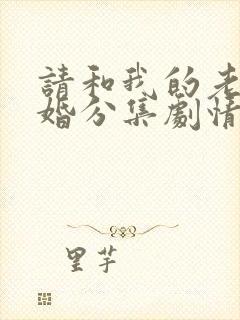 請和我的老
婚分集劇情
里芋